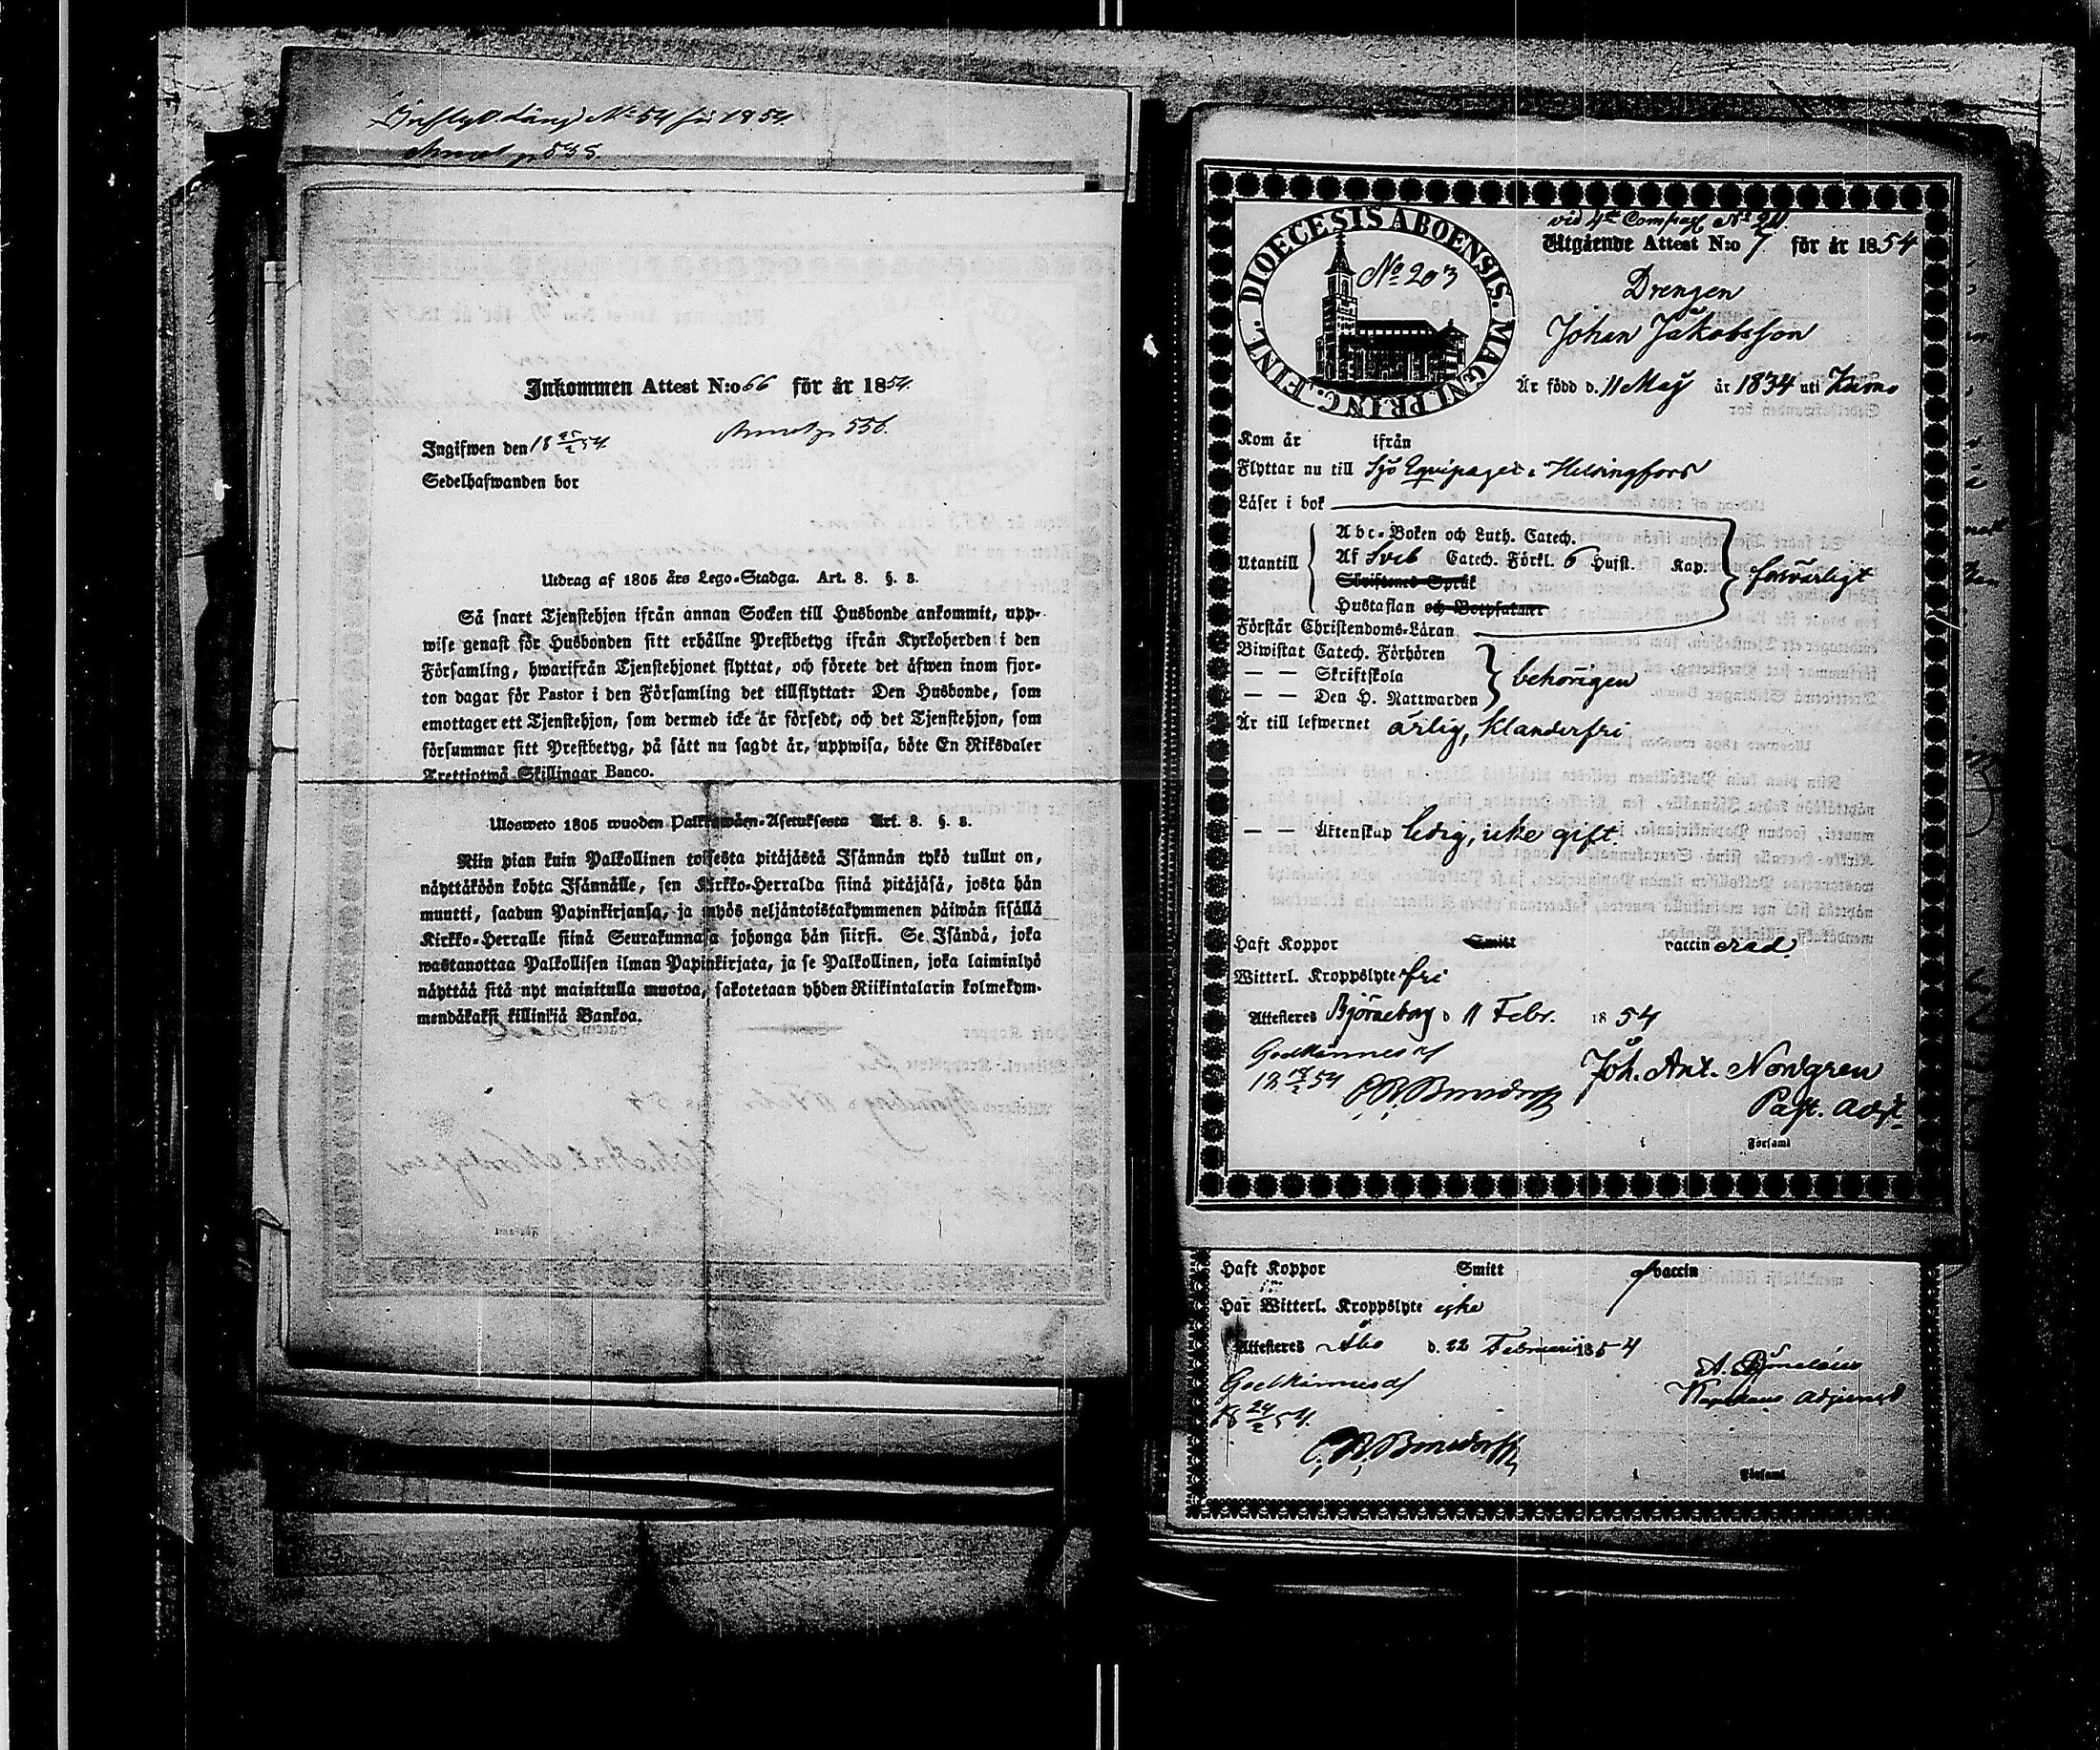 Inflytt. Läng. No 54 för 1854.
p 535.
Inkommen Attest N:o 66 för år 1854.
p. 556.
Ingifwen den 18 25/2 54.
Sedelhafwanden bor
Utdrag af 1805 års Lego-Stadga. Art. 8. §. 8.
Så snart Tjenstehjon ifrån annan Socken till Husbonde ankommit, upp-
wise genast för Husbonden sitt erhållne Prestbetyg ifrån Kyrkoherden i den
Församling, hwarifrån Tjenstehjonet flyttat, och förete det äfwen inom fjor-
ton dagar för Pastor i den Församling det tillflyttat: Den Husbonde, som
emottager ett Tjenstehjon, som dermed icke är försedt, och det Tjenstehjon, som
försummar sitt Prestbetyg, på sätt nu sagdt är, uppwisa, böte En Riksdaler
Trettiotwå Skillingar Banco.
Ulosweto 1805 wuoden Palkkawäen-Asetuksesta Art. 8. §. 8.
Niin pian kuin Palkollinen toisesta pitäjästä Isännän tykö tullut on,
näyttäköön kohta Isännälle, sen Kirkko-Herralda siinä pitäjäsä, josta hän
muutti, saadun Papinkirjansa, ja myös neljäntoistakymmenen päiwän sisällä
Kirkko-Herralle siinä Seurakunnasa johonga hän siirsi. Se Isändä, joka
wastanottaa Palkollisen ilman Papinkirjata, ja se Palkollinen, joka laiminlyö
näyttää sitä nyt mainitulla muotoa, sakotetaan yhden Riikintalarin kolmekym-
mendäkaksi killinkiä Bankoa.
DIOECESIS ABOENSIS. MAGNI PRINC. FINL.
No 203
vid 4de Compagn No 24.
Utgående Attest N:o 7 för år 1854
Drengen
Johan Jakobsson
Är född d. 11 Maij år 1834 uti Kumo
Kom år ifrån
Flyttar nu till Sjö Equipaget i Helsingfors
Läser i bok
Abc-Boken och Luth. Catech.
Utantill Af Sveb Catech. Förkl. 6 Hufst. Kap. försvarligt
Skriftenes Språk
Hustaflan och Botpsalmer
Förstår Christendoms-Läran
Biwistat Catech. Förhören
— — Skriftskola behörigen
— — Den H. Nattwarden
Är till lefwernet ärlig, klanderfri
— — Äktenskap ledig, icke gift.
Haft Koppor Smitt vaccinerad.
Witterl. Kroppslyte fri
Attesteras Björneborg d 11 Febr. 1854
Godkännes af
18 17/2 54 Joh. Ant. Nordgren
Past. Adj.
i Församl
Haft Koppor Smitt af vaccin
Har Witterl. Kroppslyte ejke
Attesteras Åbo d. 22 Februari 1854
Godkännes af
18 24/2 54.
adjunct
i Församl